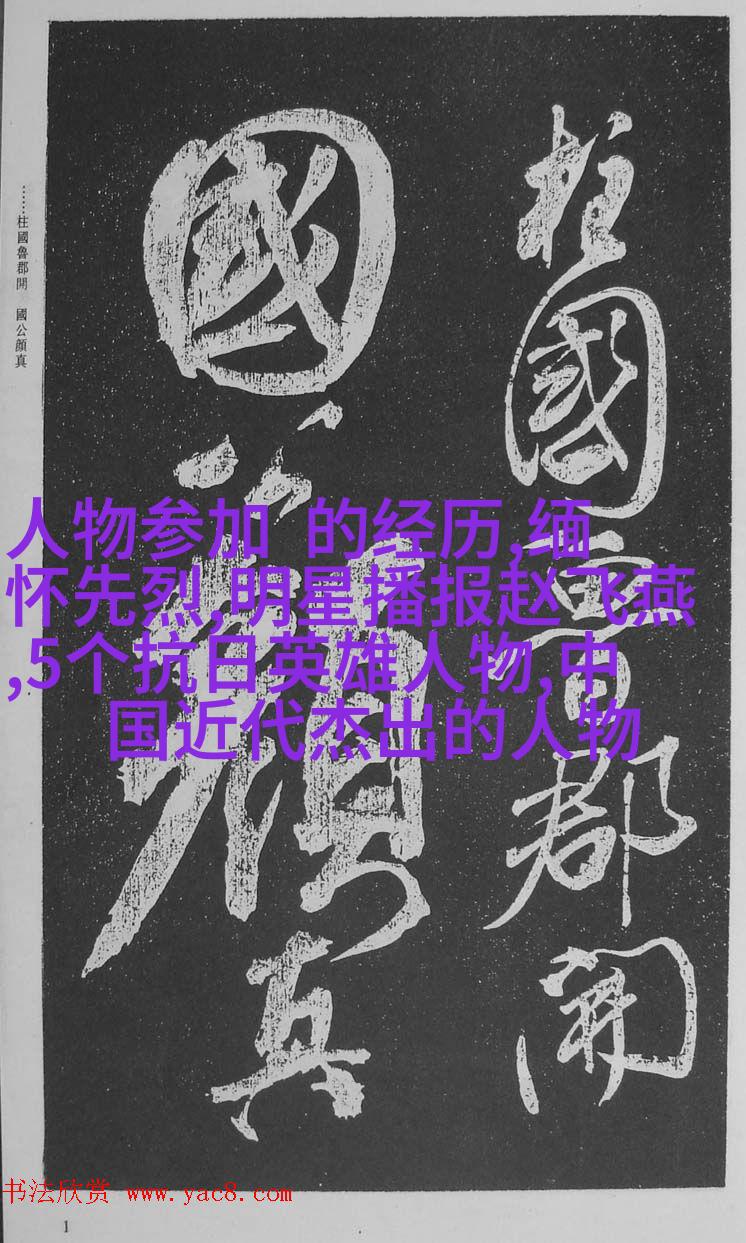 柱國魯郡開
國公顏真
……柱國魯郡開　國公顏真
人物参加 的经历,缅
怀先烈,明星播报赵飞燕
,5个抗日英雄人物,中
国近代杰出的人物
书法欣赏 www.yac8.com
1